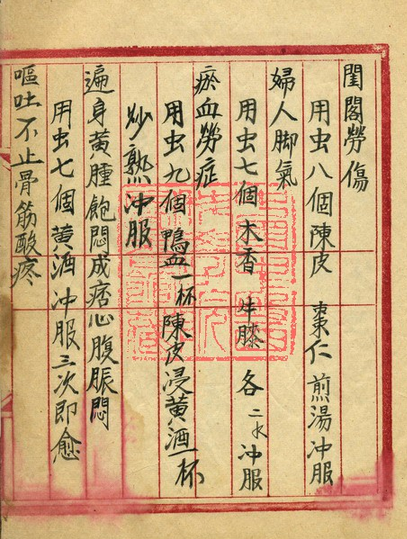 閨閣勞傷
用虫八個陳皮 棗仁煎湯冲服
婦人脚氣
用虫七個木香 牛膝各二水冲服
瘀血勞症
用虫九個鴨血一杯陳皮浸黃酒一杯
炒熟冲服
遍身黃腫飽悶成痞心腹脹悶
用虫七個黃酒冲服三次即愈
嘔吐不止骨筋酸疼